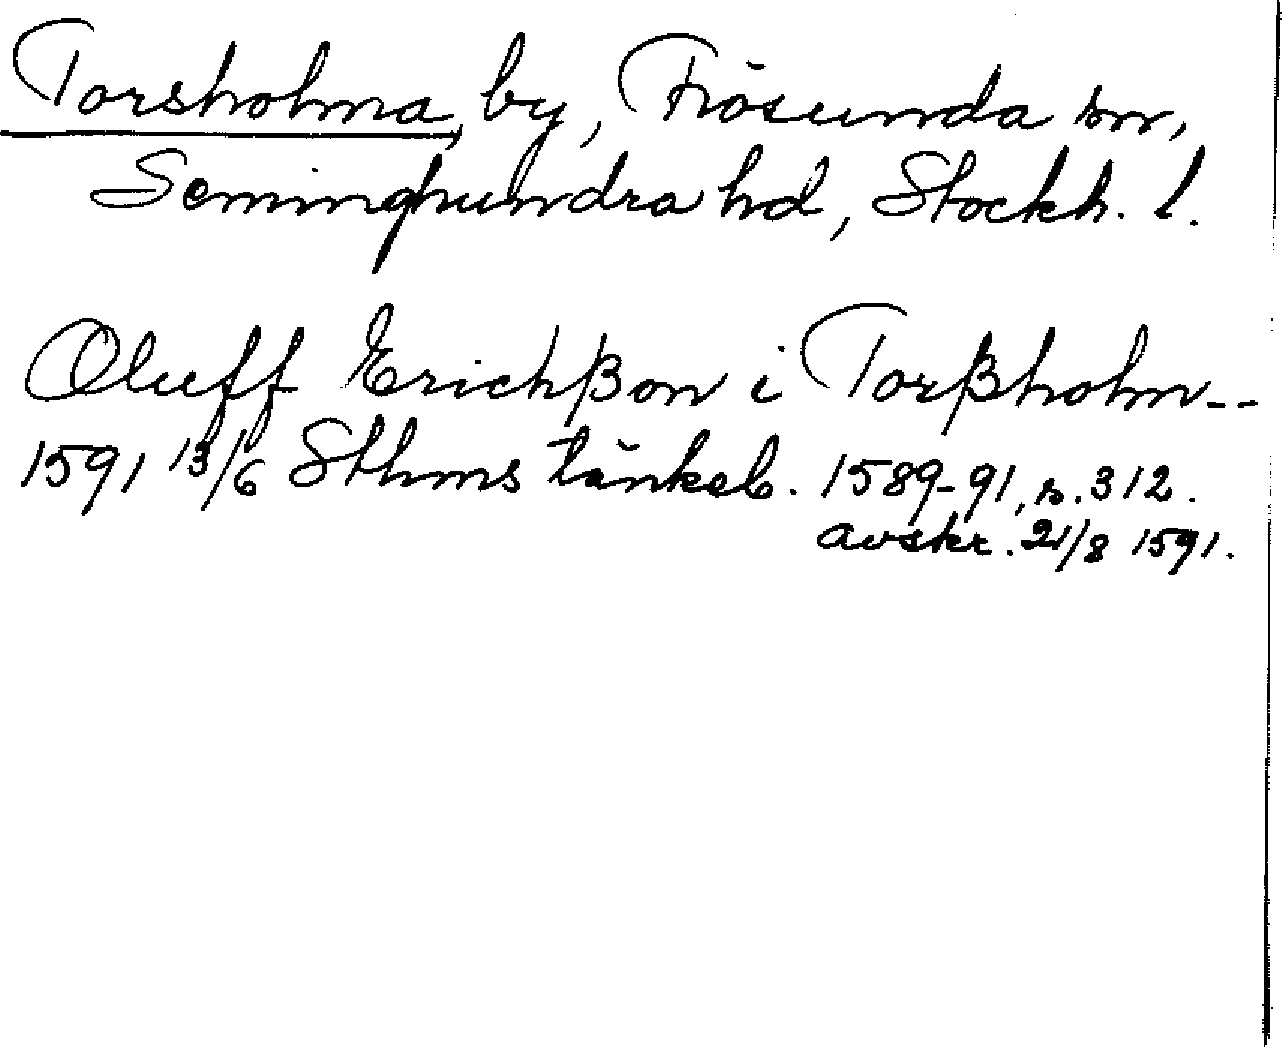 Torsholma, by, Frösunda sn,
Seminghundra hd, Stockh. l.
Oluff Erichßon i Torßholm--
1591 13/6 Sthms tänkeb. 1589-91, s. 312.
avskr. 21/8 1591.